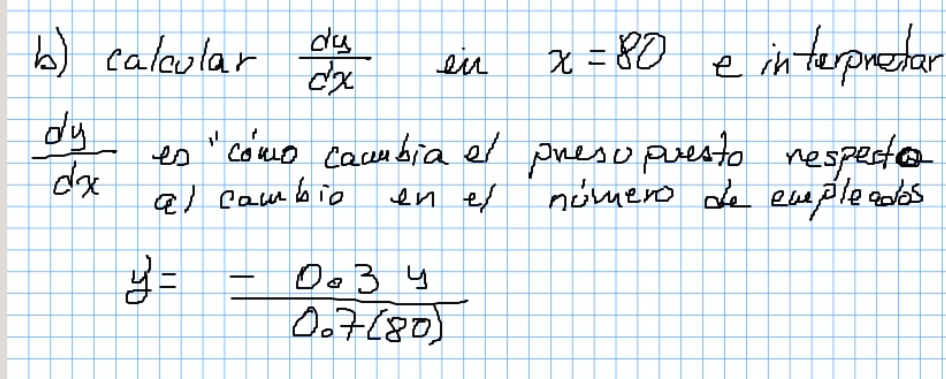 b) calcular dy/dx en x = 80 e interpretar
dy/dx es "cómo cambia el presupuesto respecto
al cambio en el número de empleados
y' = - 0.3 y / 0.7(80)